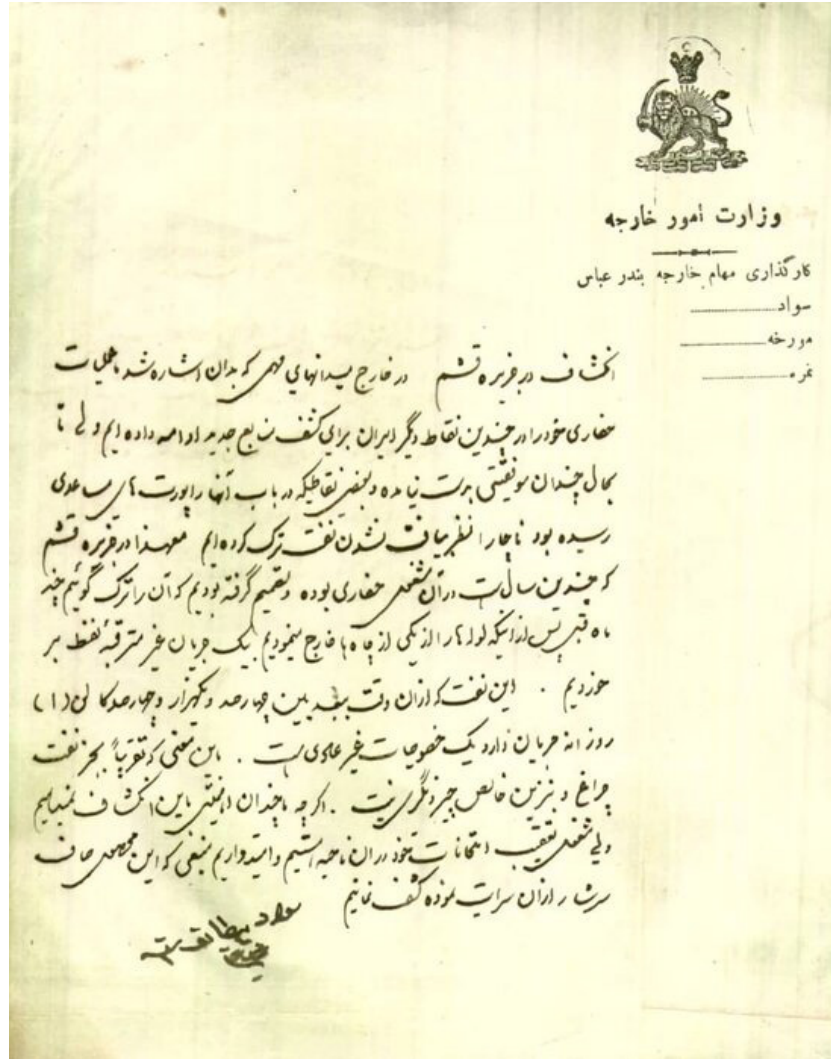 وزارت امور خارجه
کارگذاری مهام خارجه بندر عباس
سواد
مورخه
نمره
انکشاف در جزیره قشم در خارج میدانهای مهمی که بدان اشاره شد ما عملیات
حفاری خود را در چندین نقاط دیگر ایران برای کشف منابع جدید ادامه داده ایم ولی تا
بحال چندان موفقیتی بدست نیامده و بعضی نقاطیکه در باب آنها راپورت های مساعدی
رسیده بود ناچارا نظر بیافت نشدن نفت ترک کرده ایم معهذا در جزیره قشم
که چندین سال است در آن مشغول حفاری بوده و تصمیم گرفته بودیم که آن را ترک گوئیم چند
ماه قبل پس از اینکه لوله ها را از یکی از چاه ها خارج مینمودیم بیک جریان غیر مترقبه نفط بر
خوردیم . این نفت که ازان وقت ببعد بین چهارصد و یکهزار و چهارصد گالن (۱)
روزانه جریان دارد یک خصوصیات غیر عادی است . باین معنی که تقریباً بجز نفت
چراغ و بنزین خالص چیز دیگری نیست . اگر چه ما چندان اهمیتی باین انکشاف نمیدهیم
ولی مشغول تعقیب امتحانات خود در ان ناحیه هستیم و امیدواریم منبعی که این محصول صاف
سرشار ازان سرایت نموده کشف نمائیم
سواد مطابق است